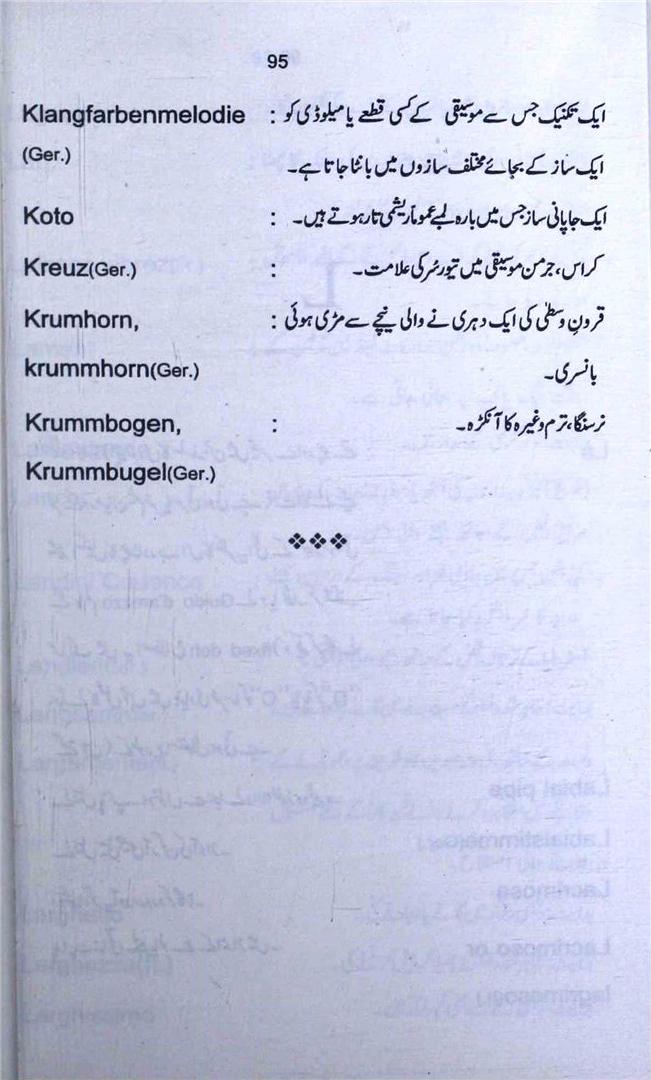 95
Klangfarbenmelodie : ایک تکنیک جس سے موسیقی کے کسی قطعے یا میلوڈی کو
(Ger.) ایک ساز کے بجائے مختلف سازوں میں بانٹا جاتا ہے۔
Koto : ایک جاپانی ساز جس میں بارہ لمبے عموماً ریشمی تار ہوتے ہیں۔
Kreuz(Ger.) : کراس، جرمن موسیقی میں تیور سُر کی علامت۔
Krumhorn, : قرونِ وسطٰی کی ایک دہری نے والی نیچے سے مڑی ہوئی
krummhorn(Ger.) بانسری۔
Krummbogen, : نرسنگا، ترم وغیرہ کا آنکڑہ۔
Krummbugel(Ger.)